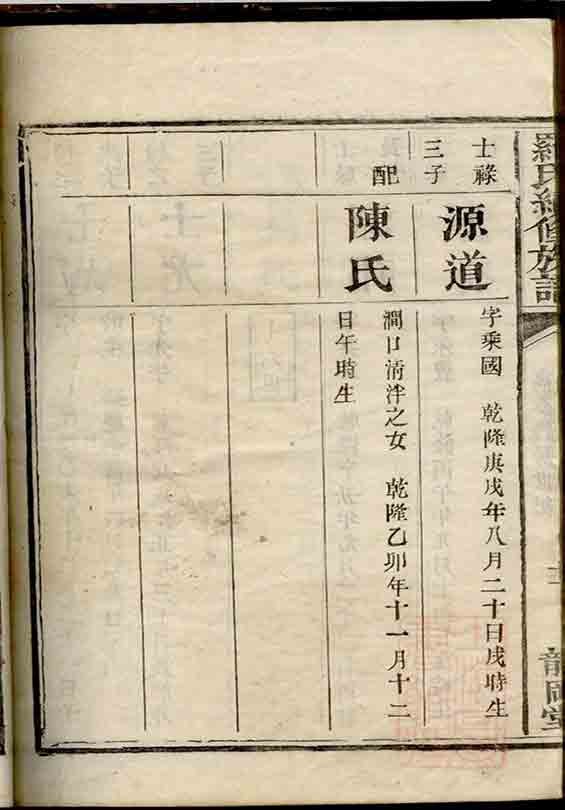 羅氏續修族譜
龍岡堂
士祿
三子
源道
字乘國 乾隆庚戌年八月二十日戌時生
配
陳氏
澗口清泮之女 乾隆乙卯年十一月十二
日午時生